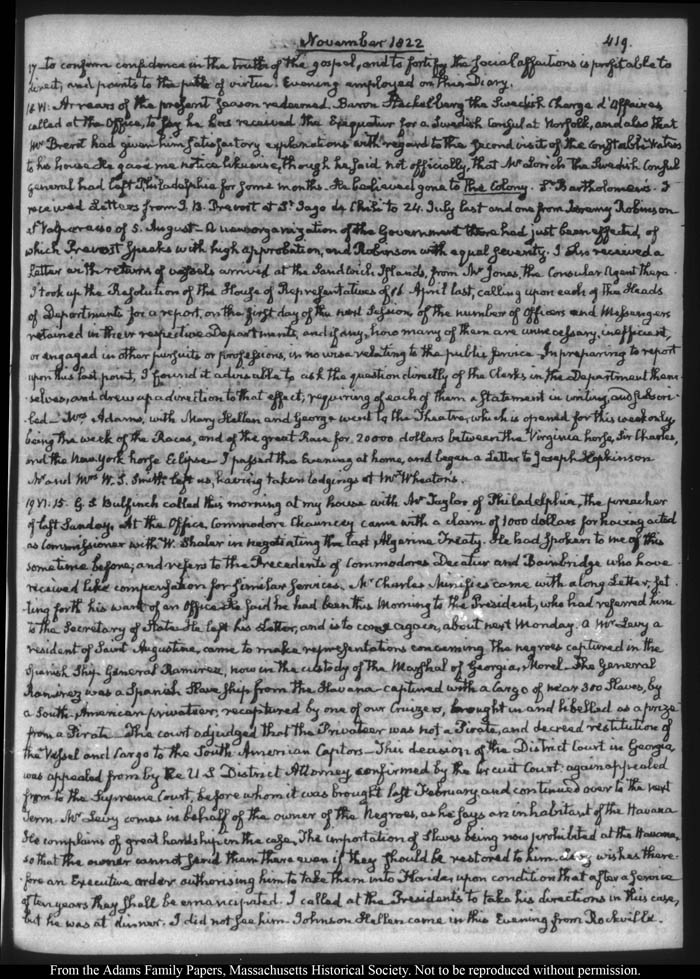 November 1822
419.
17 to confirm confidence in the truth of the gospel, and to fortify the social affections is profitable to
direct, and points to the path of virtue. Evening employed on this Diary.
18 VI: Arrears of the present season redeemed. Baron Stackelburg the Swedish Chargé d'Affaires
called at the Office, to say he has received the Exequatur for a Swedish Consul at Norfolk, and also that
Mr Brent had given him satisfactory explanations with regard to the second visit of the Constable
to his house. He gave me notice likewise, though he said not officially, that Mr Lorich the Swedish Consul
General had left Philadelphia for some months. He believed gone to the Colony. St Bartholomews. I
received Letters from J. B. Prevost at St Iago de Chili to 24. July last and one from Jeremy Robinson
at Valparaiso of 5. August. A new organization of the Government there had just been effected, of
which Prevost speaks with high approbation, and Robinson with equal severity. I also received a
Letter with returns of vessels arrived at the Sandwich Islands, from Mr Jones, the Consular Agent there.
I took up the Resolution of the House of Representatives of 16 April last, calling upon each of the Heads
of Departments for a report, on the first day of the next Session, of the number of Officers and Messengers
retained in their respective Departments, and if any, how many of them are unnecessary, inefficient,
or engaged in other pursuits or professions, in no wise relating to the public service. In preparing to report
upon this last point, I found it advisable to ask the question directly of the Clerks in the Department them-
selves, and drew up a direction to that effect; requiring of each of them a Statement in writing, and subscri-
bed. Mrs Adams, with Mary Hellen and George went to the Theatre, which is opened for this week only
being the week of the Races, and of the great Race for 20000 dollars between the Virginia horse, Sir Charles,
and the New York horse Eclipse. I passed the Evening at home, and began a Letter to Joseph Hopkinson
Mr and Mrs W. S. Smith left us, having taken lodgings at Mr Wheaton's.
19 VI. 15. G. S Bulfinch called this morning at my house with Mr Taylor of Philadelphia, the preacher
of last Sunday. At the Office, Commodore Chauncey came with a claim of 1000 dollars for having acted
as Commissioner with W. Shaler in negotiating the last Algerine Treaty. He had spoken to me of this
sometime before; and refers to the Precedents of Commodores Decatur and Bainbridge who have
received like compensation for similar services. Mr Charles Minifies came with a long Letter, set-
ting forth his want of an Office. He said he had been this Morning to the President, who had referred him
to the Secretary of State. He left his Letter, and is to come again, about next Monday. A Mr Levy a
resident of Saint Augustine, came to make representations concerning the negroes captured in the
Spanish Ship General Ramirez, now in the custody of the Marshal of Georgia, Morel. The General
Ramirez was a Spanish Slave Ship from the Havana captured with a cargo of near 300 Slaves, by
a South-American privateer, recaptured by one of our Cruizers, brought in and libelled as a prize
from a Pirate. The court adjudged that the Privateer was not a Pirate, and decreed restitution of
the Vessel and Cargo to the South American Captors. This decision of the District Court in Georgia
was appealed from by the U S District Attorney, confirmed by the Circuit Court, again appealed
from to the Supreme Court, before whom it was brought last February and continued over to the next
Term. Mr Levy comes in behalf of the owner of the Negroes, as he says an inhabitant of the Havana
He complains of great hardship in the case, The importation of Slaves being now prohibited at the Havana,
so that the owner cannot send them there even if they should be restored to him. Levy wishes there-
fore an Executive order authorising him to take them into Florida, upon condition that after a service
of ten years they shall be emancipated. I called at the Presidents to take his directions in this case,
but he was at dinner. I did not see him. Johnson Hellen came in this Evening from Rockville.
From the Adams Family Papers, Massachusetts Historical Society. Not to be reproduced without permission.